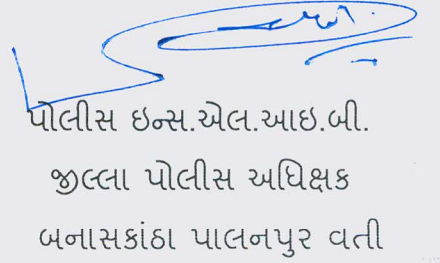 પોલીસ ઇન્સ.એલ.આઇ.બી.
જીલ્લા પોલીસ અધિક્ષક
બનાસકાંઠા પાલનપુર વતી